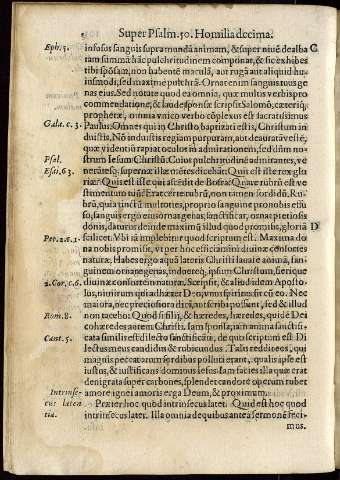 Super Psalm. 50. Homilia decima.
Ephe. 5. infusos sanguis supra mundā animam, & super niuē dealba C
tam summa hac pulchritudinem componat, & sic exhibes
tibi spōsam, non habentē maculā, aut rugā aut aliquid hu-
iusmodi, sed maxime pulchrā. Ornat enim sanguis tuus ge
nas eius. Sed notate quod ea omnia, quæ multis verbis pro
commendatione, & laude sponsæ scripsit Salomō, cæteriq;
prophetæ, omnia vnico verbo cōplexus est sacratissimus
Gala. c. 3. Paulus. Omnes qui in Christo baptizati estis, Christum in
duistis. Nō induistis regiam purpuram, aut deauratā vestē,
quæ videnti rapiat oculos in admirationem, sed dn̄m no-
Psal. strum Iesum Christū. Cuius pulchritudinē admirantes, ve
Esai. 63. neratęsq; supernæ illæ mētes dicebāt: Quis est iste rex glo
riæ? Quis est iste qui ascēdit de Bosra? Quare rubrū est ve
stimentum tuū? Erat cæterū rubrū, non tamen sordidū. Ru-
brū, quia tinctū multoties, proprio sanguine pro nobis effu
so, sanguis ergo eius ornas genas, sanctificat, ornat pretiosis
donis, datur is deinde maximū illud quod promisit, gloriā D
Pet. 2. c. 1. scilicet. Vbi iā implebitur quod scriptum est. Maxima do
na nobis promisit, vt per hoc efficiamini diuinæ consortes
naturæ. Habes ergo aquā lateris Christi lauare animā, san-
guinem ornare genas, indueręq; ipsum Christum, sierique
2. Cor. c. 6. diuinæ consortem naturæ. Scripsit, & aliud idem Aposto-
lus, nimirum qui adhæret Deo, vnus spiritus sit cū eo. Nec
maiora, nec pretiosiora dici, nec scribi possunt, sed & illud
Rom. 8. non tacebo: Quod si filij, & hæredes, hæredes, quidē Dei
cohæredes autem Christi. Iam sponsa, iam anima sanctifi-
Cant. 5. cata similis est dilecto sanctificātī, de quo scriptum est: Di
lectus meus candidus & rubicundus. Talis redditeos, qui
magnis peccatorum sordibus polluti erant, qualis ipse est
iustus, & iustificans domimus Iesus. Iam facies illa quæ erat
denigrata super carbones, splendet candore operum rubet
Intrinse- amore ignei amoris erga Deum, & proximum.
cus laten Præter hoc quod intrinsecus latet. Quid est hoc quod
tia. intrinsecus later. Illa omnia de quibus antea sermonē feci-
mus.